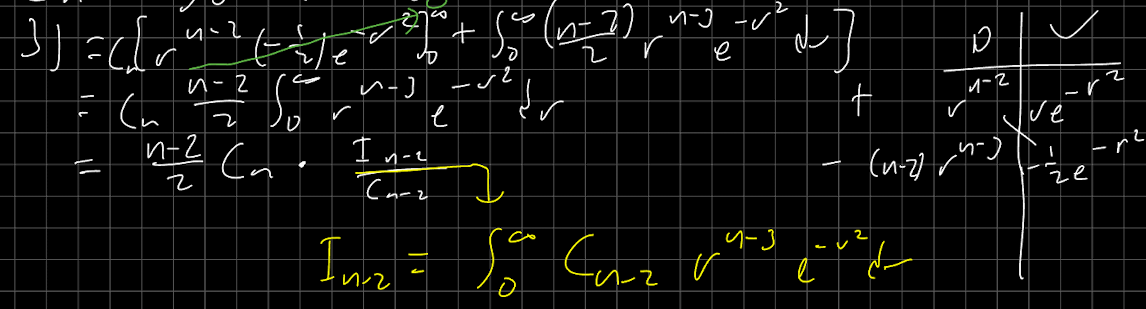 3) = C_n [ r^{n-2} (-\frac{1}{2}) e^{-r^2} ]_0^∞ + ∫_0^∞ (\frac{n-2}{2}) r^{n-3} e^{-r^2} dr ]
= C_n \frac{n-2}{2} ∫_0^∞ r^{n-3} e^{-r^2} dr
= \frac{n-2}{2} C_n · \frac{I_{n-2}}{C_{n-2}}
I_{n-2} = ∫_0^∞ C_{n-2} r^{n-3} e^{-r^2} dr
D | ✓
+ r^{n-2} | r e^{-r^2}
- (n-2) r^{n-3} | -\frac{1}{2} e^{-r^2}